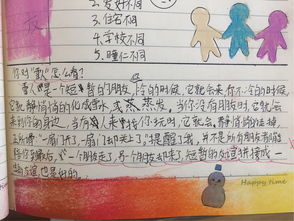 2.爱好不同
3.住宅不同
4.学校不同
5.睡仁不同
你对"雪"怎么看?
雪人是一个短暂的朋友,冷的时候,它就会来你不冷的时候,
它就静悄悄的化成水或蒸发。当你没有朋友时,它就会
来到你的身边,当有人来找你玩时,它就会静悄悄的走掉。
正所谓"一扇门开了,一扇门却关上了"提醒了我,并不是所有朋友都能
陪你到最后,一个朋友走了,另一个朋友却来了,短暂的
Happy time